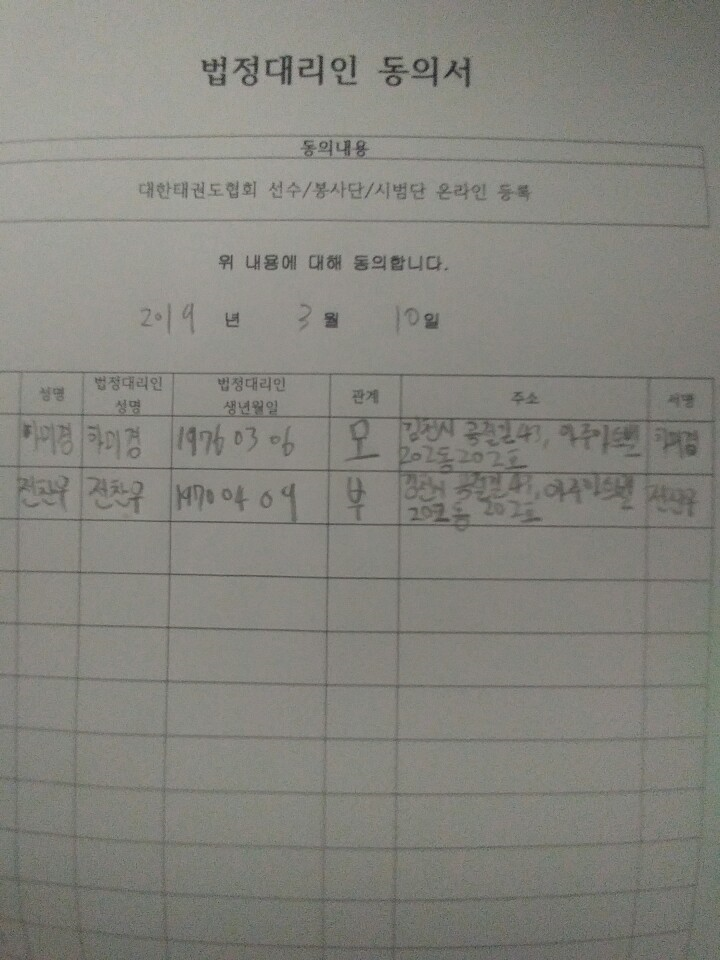 법정대리인 동의서
동의내용
대한태권도협회 선수/봉사단/시범단 온라인 등록
위 내용에 대해 동의합니다.
2019 년 3 월 10일
성명 법정대리인 성명 법정대리인 생년월일 관계 주소 서명
하미경 하미경 1976 03 06 모 김천시 43, 아주아스벨 하미경
202동 202호
전찬우 전찬우 1970 04 09 부 김천시 43, 아주아스벨 전찬우
202동 202호